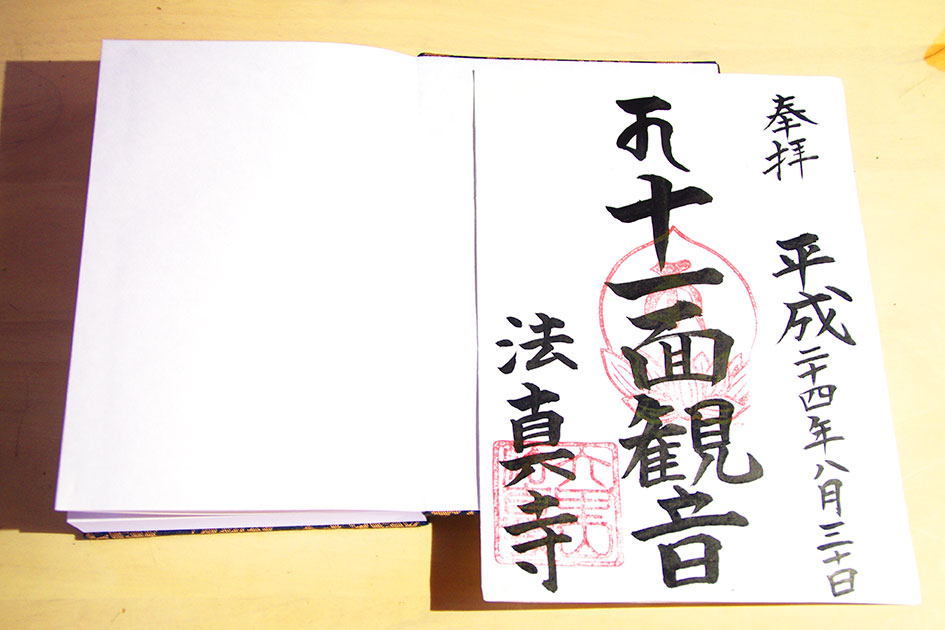 奉拝 平成二十四年八月三十日
十一面観音
法真寺